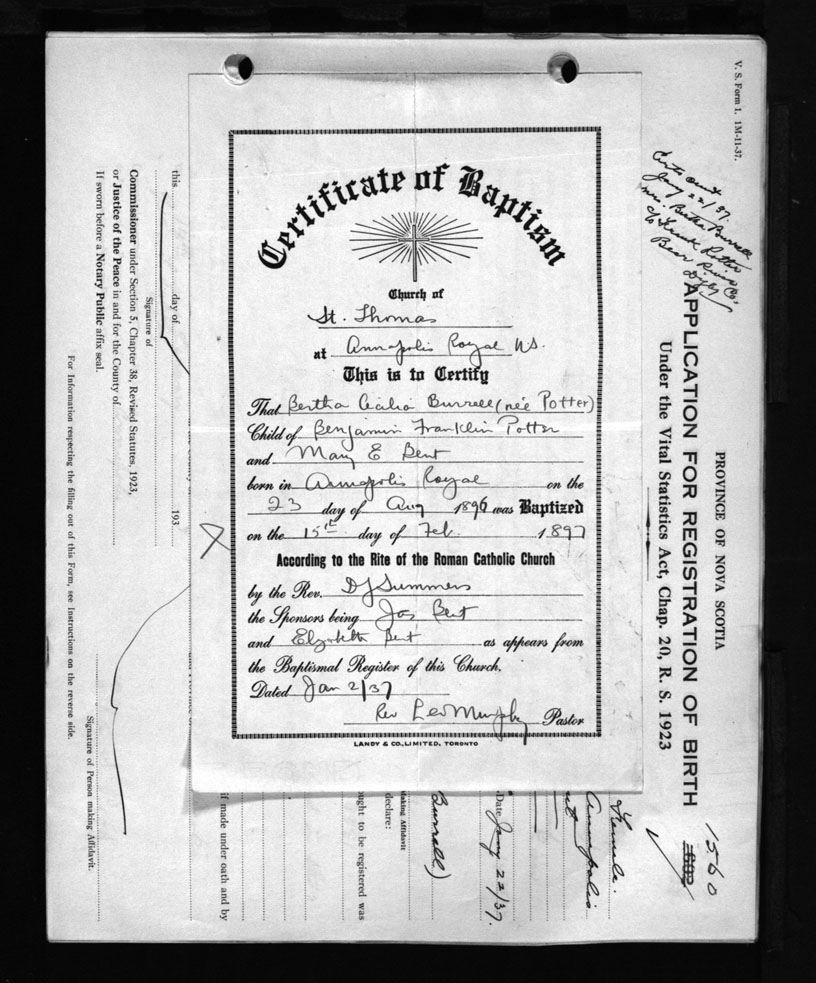 Certificate of Baptism
Church of
St. Thomas
at Annapolis Royal N.S.
This is to Certify
That Bertha Cecilia Burrell (neé Potter)
Child of Benjamin Franklin Potter
and Mary E Bent
born in Annapolis Royal on the
23 day of Aug 1896 was Baptized
on the 15th day of Feb. 1897
According to the Rite of the Roman Catholic Church
by the Rev. D J Summers
the Sponsors being Jas Bent
and Elizabeth Bent as appears from
the Baptismal Register of this Church.
Dated Jan 2/37
Rev Leo Murphy Pastor
LANDY & CO., LIMITED, TORONTO
V. S. Form 1. 1M-11-37.
Jany 22/37.
Mrs. Bertha Burrell
c/o Frank Potter
Bear River
Digby Co.
PROVINCE OF NOVA SCOTIA
APPLICATION FOR REGISTRATION OF BIRTH
Under the Vital Statistics Act, Chap. 20, R. S. 1923
1560
Female.
Annapolis
Date Jany 22/37.
Burrell)
Making Affidavit
declare:
ought to be registered was
if made under oath and by
this day of 193
Signature of
Commissioner under Section 5, Chapter 38, Revised Statutes, 1923,
or Justice of the Peace in and for the County of
If sworn before a Notary Public affix seal.
Signature of Person making Affidavit.
For Information respecting the filling out of this Form, see Instructions on the reverse side.